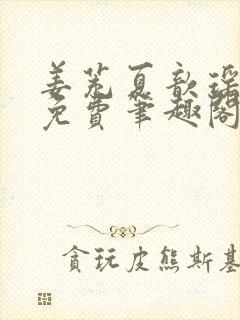 姜荒夏歆瑶
免费笔趣阁
贪玩皮熊斯基